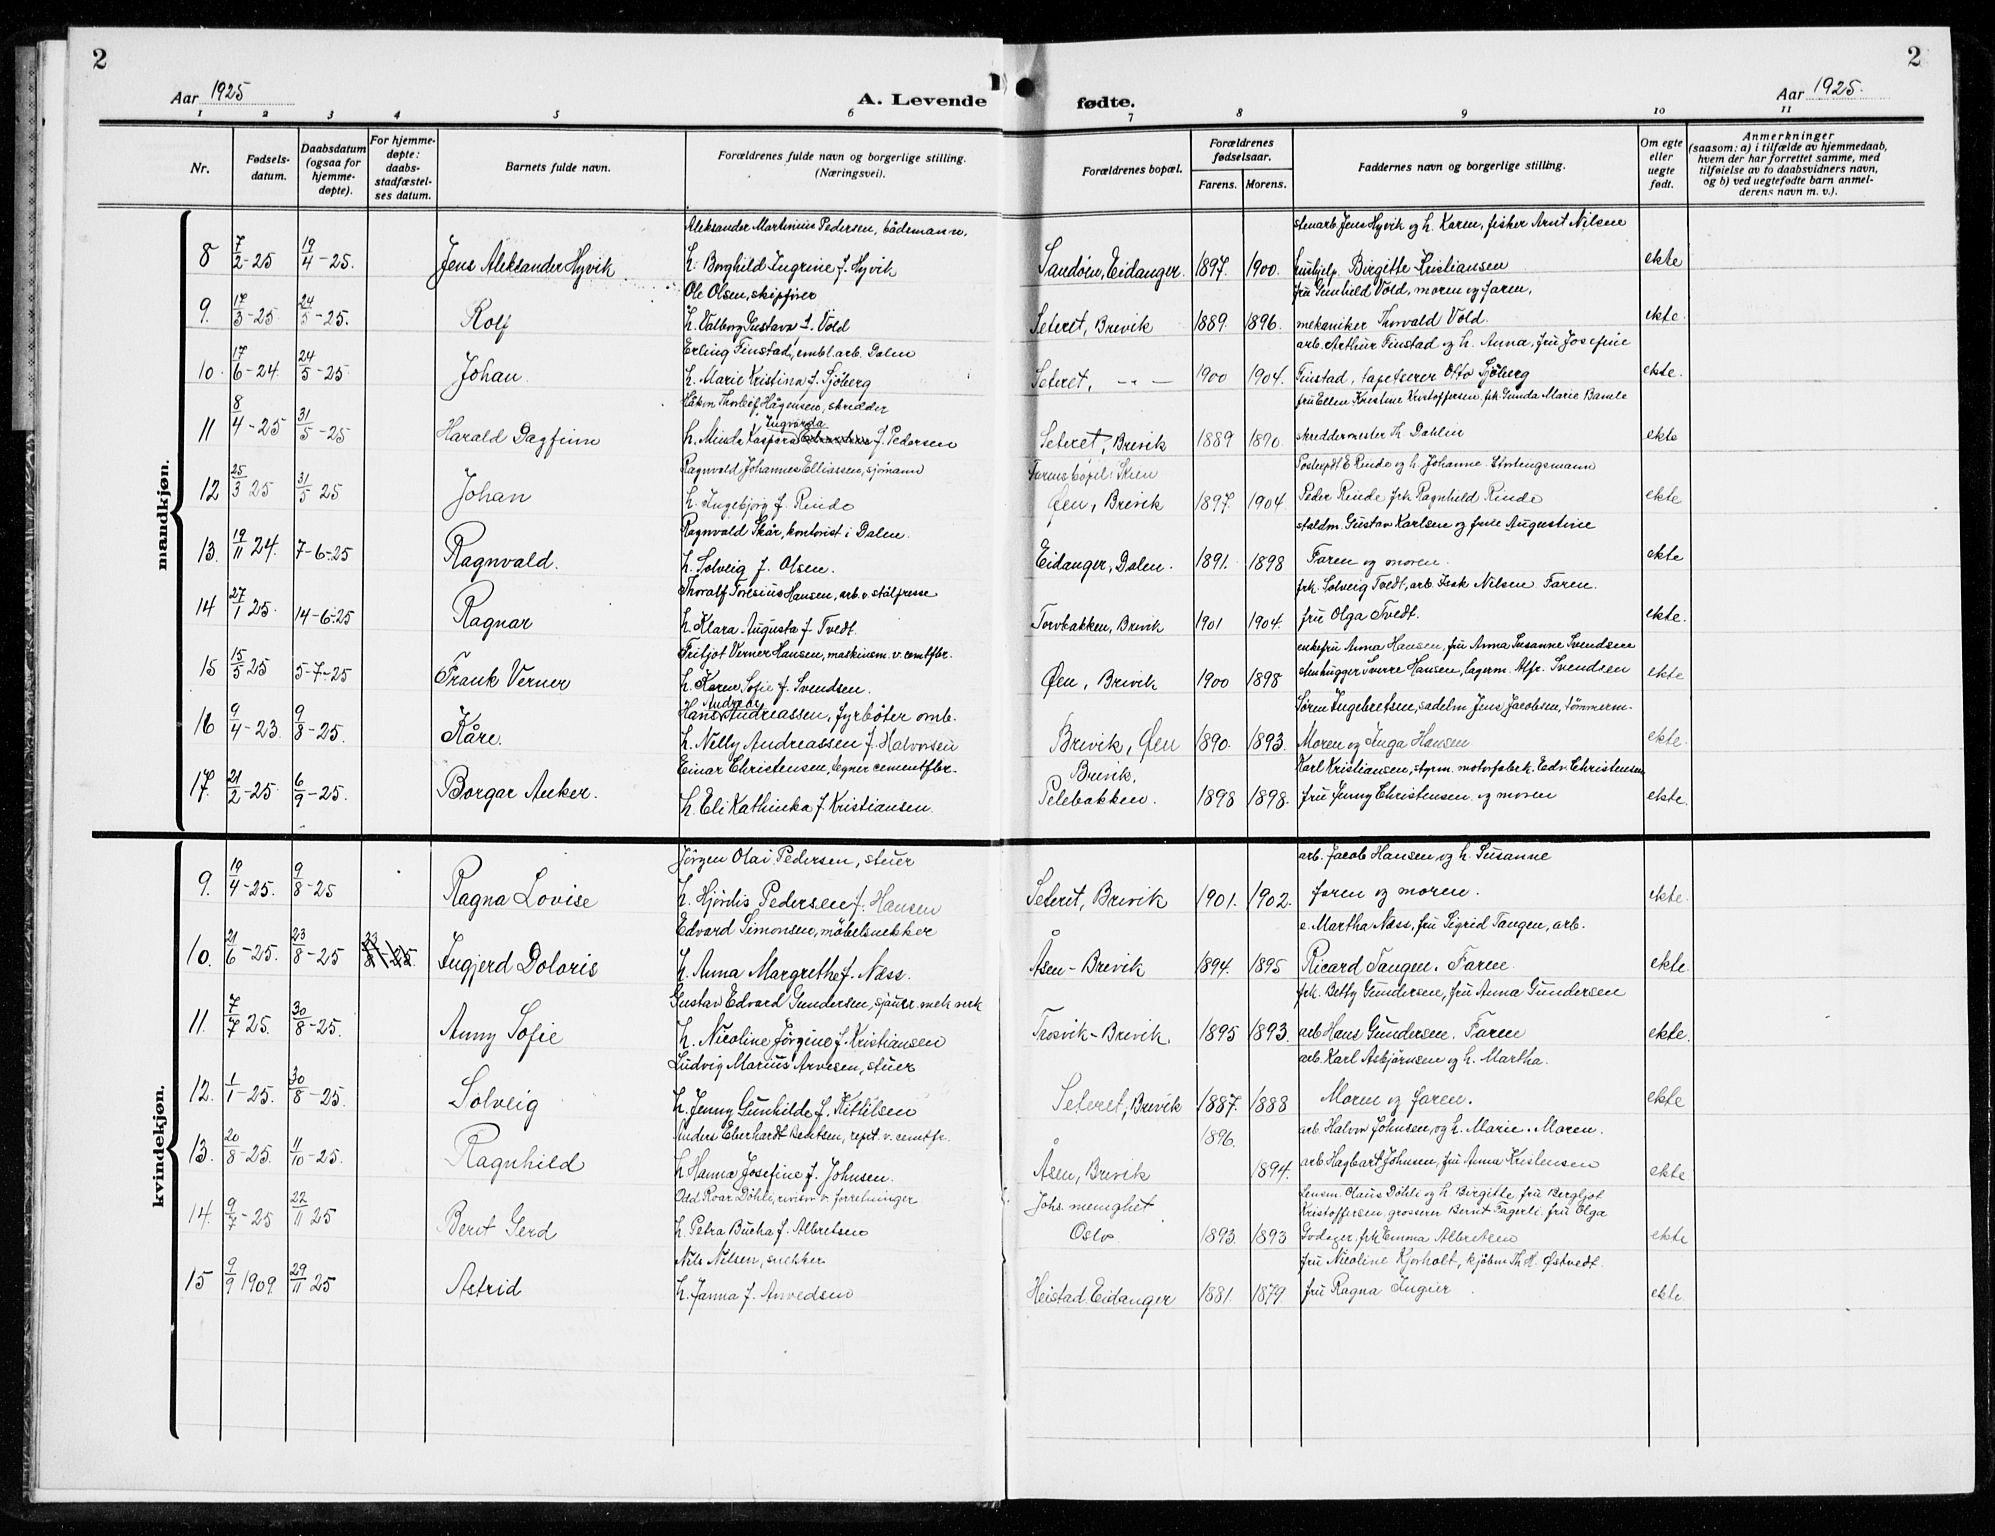 2
2
Aar 1925
A. Levende fødte.
Aar 1925.
1 2 3 4 5 6 7 8 9 10 11
Nr.
Fødsels-
datum.
Daabsdatum
(ogsaa for
hjemme-
døpte).
For hjemme-
døpte:
daabs-
stadfæstel-
ses datum.
Barnets fulde navn.
Forældrenes fulde navn og borgerlige stilling.
(Næringsvei).
Forældrenes bopæl.
Forældrenes
fødselsaar.
Farens. Morens.
Faddernes navn og borgerlige stilling.
Om egte
eller
uegte
født.
Anmerkninger
(saasom: a) i tilfælde av hjemmedaab,
hvem der har forrettet samme, med
tilføielse av to daabsvidners navn,
og b) ved uegtefødte barn anmel-
derens navn m. v.).
mandkjøn.
Aleksander Martinius Pedersen, bådsmann, stenarb. Jens Hyvik og h. Karen, fisker Arnt Nilsene
8 7/2-25 19/4-25. Jens Aleksander Hyvik h: Borghild Ingrine f. Hyvik Sandøen, Eidanger. 1897. 1900. Birgitte Kristiansen ekte
Ole Olsen, skipfører fru Gunhild Vold, moren og faren,
9. 17/3-25 24/5-25. Rolf h. Valborg Gustava f. Vold Seteret, Brevik 1889 1896. mekaniker Thorvald Vold. ekte.
Erling Finstad, embl. arb. Dalen arb. Arthur Finstad og h. Anna, fru Josefine
10. 17/6-24 24/5-25 Johan. h. Marie Kristina f. Sjöberg Seteret, - - - 1900 1904. Finstad, tapetserer Otto Sjöberg ekte.
Håkon Thorleif Hågensen, skredder fru Ellen Kristine Kristoffersen, frk Gunda Marie Bamle
Ingvarda
11 8/4-25 31/5-25 Harald Dagfinn h. Minda Kaspara f. Pedersen Seteret, Brevik 1889 1890. skreddermester Th. Dahlin ekte
Ragnvald Johannes Elliassen, sjömann Farens bopel: Skien Postexpdt E Rinde og h. Johanne. Stortingsmann
12 25/3 25 31/5 25 Johan h. Ingebjorg f. Rinde Øen, Brevik 1897. 1904. Peder Rinde frk Ragnhild Rinde ekte
Ragnvald Skår, kontorist i Dalen. staldm. Gustav Karlsen og frue Augustine
13. 19/11 24. 7-6-25 Ragnvald. h. Solveig f. Olsen. Eidanger, Dalen. 1891. 1898 Faren og moren. ekte
Thoralf Toresius Hansen, arb. v. stålpresse frk. Solveig Tvedt, arb. Isak Nilsen Faren.
14 27/1 25. 14-6-25 Ragnar h. Klara Augusta f. Tvedt. Torvbakken, Brevik 1901 1904. fru Olga Tvedt. ekte.
Fritjof Verner Hansen, maskinsm. v. cemtfbr. enkefru Anna Hansen, fru Anna Susanne Svendsen
15 15/5 25 5-7-25 Frank Verner h. Karen Sofie f. Svendsen. Øen, Brevik 1900 1898 stenhugger Sverre Hansen, lagerm. Alfr. Svendsen ekte
Andreas
Hans Andreassen, fyrbøter omb. Søren Ingebretsen, sadelm Jens Jacobsen, tömmerm.
16 9/4-23. 9/8-25. Kåre. h. Nelly Andreassen f. Halvorsen Brevik, Øen 1890. 1893. Moren og Inga Hansen ekte.
Einar Christensen, egner cementfbr. Brevik, Karl Kristiansen, styrm. motorfabrk. Edv. Christensen
17. 21/2-25. 6/9-25. Borgar Anker. h. Eli Kathinka f. Kristiansen. Pelebakken. 1898 1898. fru Jenny Christensen og moren ekte.
kvindekjøn.
Jörgen Olai Pedersen, stuer arb. Jacob Hansen og h. Susanne
9. 19/4-25. 9/8-25 Ragna Lovise h. Hjördis Pedersen f. Hansen Seteret, Brevik 1901. 1902. faren og moren. ekte.
Edvard Simonsen, möbelsnekker e. Martha Næss, fru Sigrid Tangen, arb.
10. 21/6-25. 23/8-25 23/8-25. Ingjerd Doloris h. Anna Margrethe f. Næss. Åsen-Brevik 1894. 1895 Ricard Tangen. Faren ekte.
Gustav Edvard Gundersen, sjauer. mek verk frk. Betty Gundersen, fru Anna Gundersen
11. 7/7 25. 30/8-25. Anny Sofie h. Nicoline Jörgine f. Kristiansen Trosvik-Brevik. 1895 1893. arb Hans Gundersen. Faren ekte.
Ludvig Marius Arvesen, stuer arb. Karl Asbjörnsen og h. Martha.
12. 1/1-25. 30/8-25. Solveig h. Jenny Gunhilde f. Kittilsen Seteret, Brevik 1887. 1888 Moren og faren. ekte
Anders Eberhardt Bentsen, repr. v. cemtfr. 1896. arb. Halvor Johnsen, og h. Marie. Moren.
13. 20/8-25. 11/10-25. Ragnhild h Hanna Josefine f. Johnsen. Åsen, Brevik 1894. arb Hagbart Johnsen, fru Anna Kristensen ekte
Odd Roar Döhle, revisor v. forretninger Johs. menighet Lensm. Olaus Döhli og h Birgitte fru Bergljot
Kristoffersen, grosserer Bernt Fagerli. fru Olga
14. 9/7-25 22/11 25 Berit Gerd h. Petra Bucha f. Albretsen Oslo. 1893. 1893 Godager. frk Emma Albretsen ekte
Nils Nilsen, snekker fru Nicoline Kjorholt, kjöbm Th. H. Östvedt.
15 9/9 1909 29/11 25 Astrid h. Janna f. Arvedsen Heistad. Eidanger 1881. 1879. fru Ragna Ingier ekte.